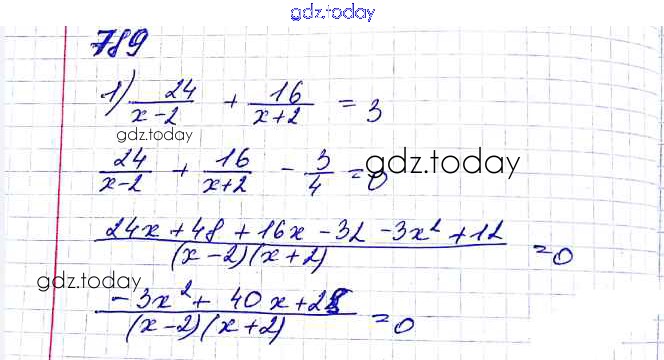 gdz.today
789
1) 24/(x-2) + 16/(x+2) = 3
gdz.today
24/(x-2) + 16/(x+2) - 3/4 = 0
gdz.today
(24x+48+16x-32-3x²+12)/((x-2)(x+2)) = 0
gdz.today
(-3x²+40x+28)/((x-2)(x+2)) = 0